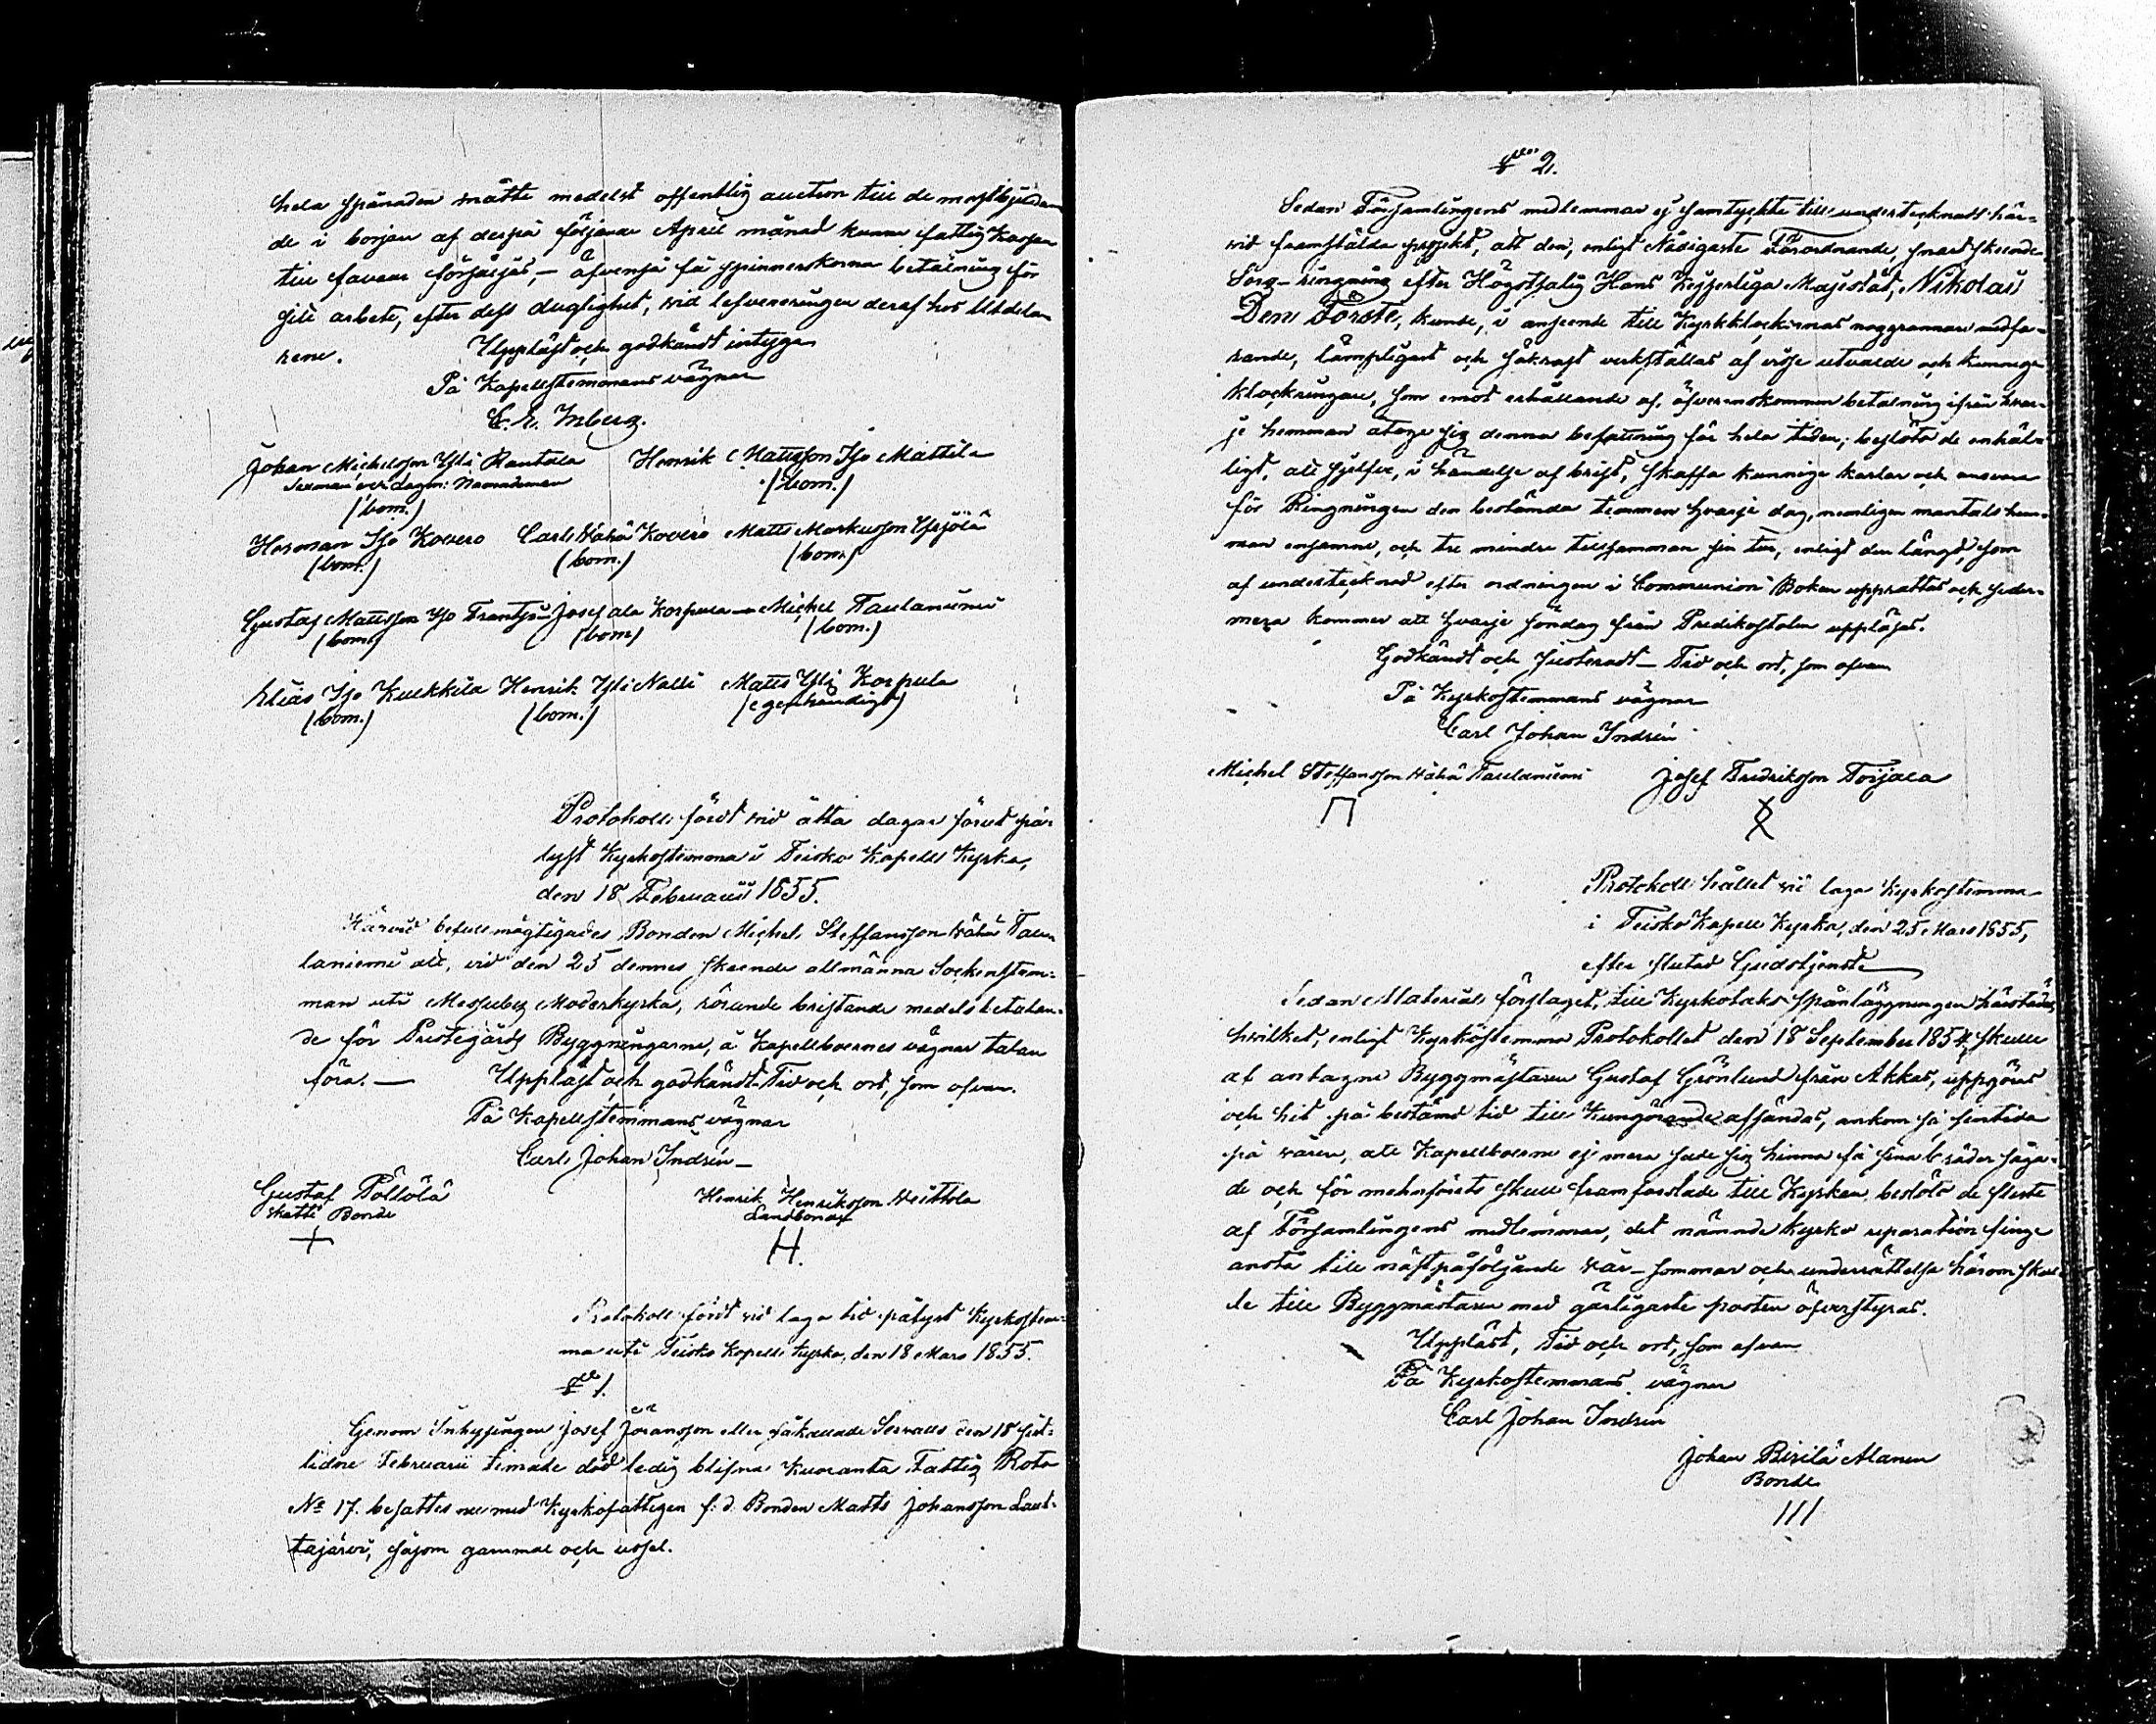 hela spånaden måtte medelst offentlig auction till de mestbjudan
de i början af derpå följande April månad kunna fattig Kassan
till faveur försäljas, – äfvenså få spinnerskorna betalning för
sitt arbete, efter dess duglighet, vid lefvereringen deraf hos Utdela
rene. Uppläst och godkändt intyga
På Kapellstemmans vägnar
C. E. Inberg.
Johan Michelsson Yli Rantala Henrik Mattsson Iso Mattila
Nämndeman (bom.)
(bom.)
Herman Iso Kovero Carl Wähä Kovero Matts Markusson Ylisjölä
(bom.) (bom.) (bom)
Gustaf Mattsson Iso Frantsi Josef ala Korpula Michel Taulaniemi
(bom) (bom) (bom.)
Elias Iso Kuckkila Henrik Yli Nalli Matts Yli Korpula
(bom.) (bom.) (egenhändigt)
Protokoll fördt vid åtta dagar förut på-
lyst Kyrkostemma i Teisko Kapells Kyrka,
den 18 Februarii 1855.
Härvid befullmägtigades Bonden Michel Steffansson Wähä Tau
laniemi att, vid den 25 dennes skeende allmänna Sockenstem-
man uti Messuby Moderkyrka, rörande bristande medels betalan-
de för Prestegårds Byggningarne, å Kapellboernes vägnar talan
föra. — Uppläst och godkändt Tid och ort, som ofvan.
På Kapellstemmans vägnar
Carl Johan Indrén
Gustaf Pöllölä Henrik Henriksson Weittola
Skatte Bonde Landbonde
+ H.
Protokoll fördt vid laga tid pålyst Kyrkostem-
ma uti Teisko Kapells kyrka, den 18 Mars 1855.
§ 1.
Genom Inhysingen Josef Göransson eller såkallade den 18 sist-
lidne Februarii timade död ledig blifna Kuoranta Fattig Rota
No 17. besattes nu med Kyrkofattigen f: d. Bonden Matts Johansson Laut-
tajärvi, såsom gammal och usel.
§ 2.
Sedan Församlingens medlemmar ej samtyckte till undertecknads här-
vid framstälda projekt, att den, enligt Nådigaste Förordnande, snart skeende
Sorg-ringning efter Högstsalig Hans Kejserliga Majestät, Nikolai
Den Förste, kunde, i anseende till Kyrkklockornas noggrannare medfa-
rande, lämpligast och säkrast verkställas af visse utvalde och kunnige
klockringare, som emot erhållande af öfverenskommen betalning ifrån hvar-
je hemman åtoge sig denna befattning för hela tiden; beslöto de enhäl-
ligt, att sjelfve, i händelse af brist, skaffa kunnige karlar och ansvara
för Ringningen den bestämda timmen hvarje dag, nemligen mantals hem-
man ensamme, och tre mindre tillsamman sin tur, enligt den längd, som
af undertecknad efter ordningen i Communion Boken upprättas och seder-
mera kommer att hvarje söndag från Predikostolen uppläsas.
Godkändt och Justeradt — Tid och ort, som ofvan
På Kyrkostemmans vägnar
Carl Johan Indrén
Michel Steffansson Wähä Taulaniemi Josef Fredriksson Toijala
Protokoll hållet vid laga Kyrkostemma
i Teisko Kapells Kyrka, den 25 Mars 1855,
efter slutad Gudstjenst
Sedan Materials förslaget, till Kyrkotaks spånläggningen härstädes,
hvilket, enligt Kyrkostemma Protokollet den 18 September 1854, skulle
af antagne Byggmästaren Gustaf Grönlund från Akkas, uppgöras
och hit på bestämd tid till Kungörande afsändas, ankom så sent
på våren, att Kapellboerne ej mera hade sig hinna få sina bräder såga-
de och för menförets skull framforslade till Kyrkan, beslöto de fleste
af Församlingens medlemmar, det nämnde Kyrko reparation finge
anstå till nästpåföljande vår-sommar och underrättelse härom skul-
le till Byggmästaren med gårligaste posten öfverstyras.
Uppläst, Tid och ort, som ofvan
På Kyrkostemmans vägnar
Carl Johan Indrén
Johan Birilä Alanen
Bonde
III